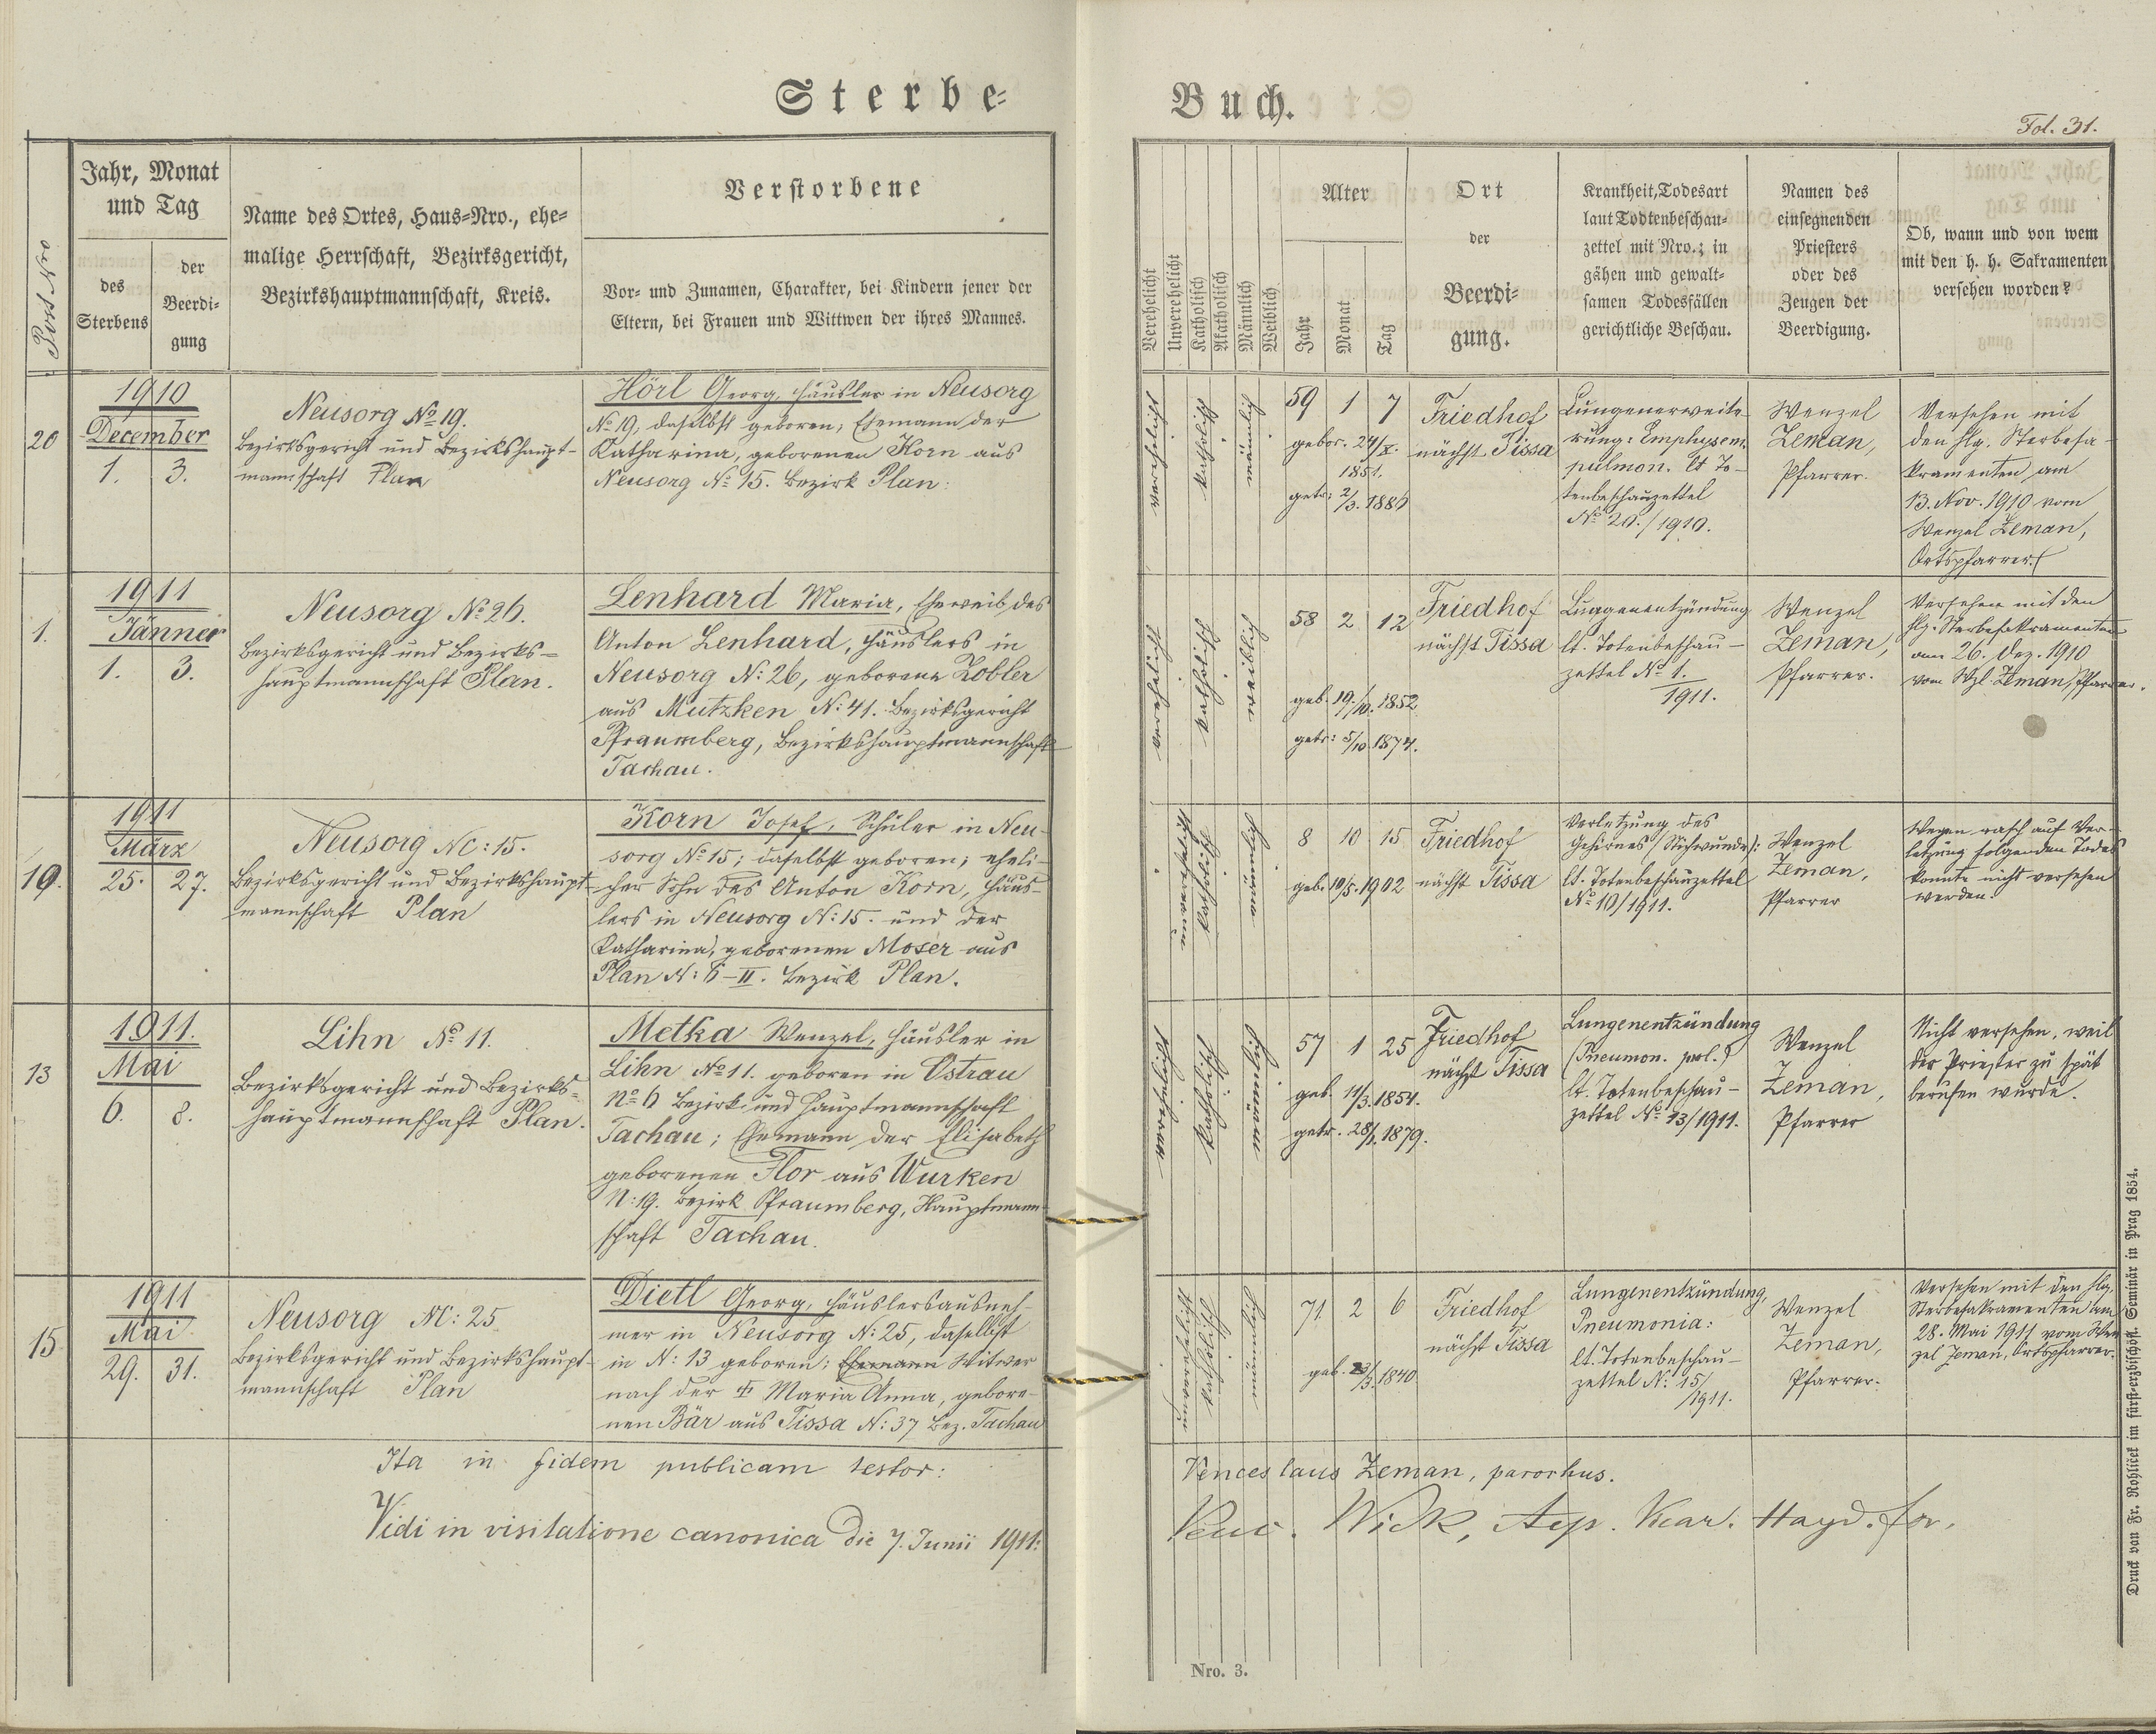 Sterbe-
Buch.
Fol. 31.
Post Nro
Jahr, Monat
und Tag
des
Sterbens
der
Beerdi-
gung
Name des Ortes, Haus-Nro., ehe-
malige Herrschaft, Bezirksgericht,
Bezirkshauptmannschaft, Kreis.
Verstorbene
Vor- und Zunamen, Charakter, bei Kindern jener der
Eltern, bei Frauen und Wittwen der ihres Mannes.
Verehelicht
Unverehelicht
Katholisch
Akatholisch
Männlich
Weiblich
Alter
Jahr
Monat
Tag
Ort
der
Beerdi-
gung.
Krankheit, Todesart
laut Todtenbeschau-
zettel mit Nro.; in
gähen und gewalt-
samen Todesfällen
gerichtliche Beschau.
Namen des
einsegnenden
Priesters
oder des
Zeugen der
Beerdigung.
Ob, wann und von wem
mit den h. h. Sakramenten
versehen worden?
20
1910
December
1. 3.
Neusorg No 19.
Bezirksgericht und Bezirkshaupt-
mannschaft Plan
Hörl Georg, Häusler in Neusorg
No 19, daselbst geboren; Ehemann der
Katharina, geborenen Korn aus
Neusorg No 15. Bezirk Plan:
verehelicht
katholisch
männlich
59 1 7
gebor. 24/X.
1851.
getr: 2/3. 1886
Friedhof
nächst Tissa
Lungenerweite-
rung: Emphysem.
pulmon. lt To-
tenbeschauzettel
No 20./1910.
Wenzel
Zeman,
Pfarrer.
Versehen mit
den hlg. Sterbesa-
kramenten am
13. Nov. 1910 vom
Wenzel Zeman,
Ortspfarrer.
1.
1911
Jänner
1. 3.
Neusorg No 26.
Bezirksgericht und Bezirks-
hauptmannschaft Plan.
Lenhard Maria, Eheweib des
Anton Lenhard, Häuslers in
Neusorg N: 26, geborene Zobler
aus Mutzken N: 41. Bezirksgericht
Pfraumberg, Bezirkshauptmannschaft
Tachau.
verehelicht
katholisch
weiblich
58 2 12
geb. 19./10. 1852
getr: 5/10 1874.
Friedhof
nächst Tissa
Lungenentzündung
lt. Totenbeschau-
zettel No 1.
1911.
Wenzel
Zeman,
Pfarrer.
Versehen mit den
hlg. Sterbesakramenten
am 26. Dez. 1910
vom Wzl. Zeman, Pfarrer.
10.
1911
März
25. 27.
Neusorg NC: 15.
Bezirksgericht und Bezirkshaupt-
mannschaft Plan
Korn Josef, Schüler in Neu-
sorg No 15; daselbst geboren; eheli-
cher Sohn des Anton Korn, Häus-
lers in Neusorg N: 15. und der
Katharina, geborenen Moser aus
Plan N: 6-II. Bezirk Plan.
unverehelicht
katholisch
männlich
8 10 15
geb. 10/5. 1902
Friedhof
nächst Tissa
Verletzung des
Gehirnes (Stichwunde):
lt. Totenbeschauzettel
No 10/1911.
Wenzel
Zeman,
Pfarrer
Wegen rasch auf Ver-
letzung folgenden Todes
konnte nicht versehen
werden.
13
1911.
Mai
6. 8.
Lihn No 11.
Bezirksgericht und Bezirks-
hauptmannschaft Plan.
Metka Wenzel, Häusler in
Lihn No 11. geboren in Ostrau
No 6 Bezirk und Hauptmannschaft
Tachau; Ehemann der Elisabeth
geborenen Flor aus Wurken
N: 19. Bezirk Pfraumberg, Hauptmann-
schaft Tachau.
verehelicht
katholisch
männlich
57 1 25
geb. 11/3. 1854.
getr. 28/1. 1879.
Friedhof
nächst Tissa
Lungenentzündung
(Pneumon.
lt. Totenbeschau-
zettel No 13/1911.
Wenzel
Zeman,
Pfarrer
Nicht versehen, weil
der Priester zu spät
berufen wurde.
15
1911
Mai
29. 31.
Neusorg NC: 25
Bezirksgericht und Bezirkshaupt-
mannschaft Plan
Dietl Georg, Häuslersausneh-
mer in Neusorg N: 25, daselbst
in N: 13 geboren; Ehemann Witwer
nach der ✝ Maria Anna, gebore-
nen Bär aus Tissa N: 37 Bez. Tachau
unverehelicht
katholisch
männlich
71 2 6
geb. 23/3. 1840
Friedhof
nächst Tissa
Lungenentzündung,
Pneumonia:
lt. Totenbeschau-
zettel N: 15/
/1911.
Wenzel
Zeman,
Pfarrer.
Versehen mit den hlg.
Sterbesakramenten am
28. Mai 1911 vom Wen-
zel Zeman, Ortspfarrer.
Ita in fidem publicam testor:
Venceslaus Zeman, parochus.
Vidi in visitatione canonica die 7. Junii 1911:
Venc. Wick, Aep. Vicar. Hayd. for.
Nro. 3.
Druck von Fr. Rohliček im fürst-erzbischöfl. Seminär in Prag 1854.